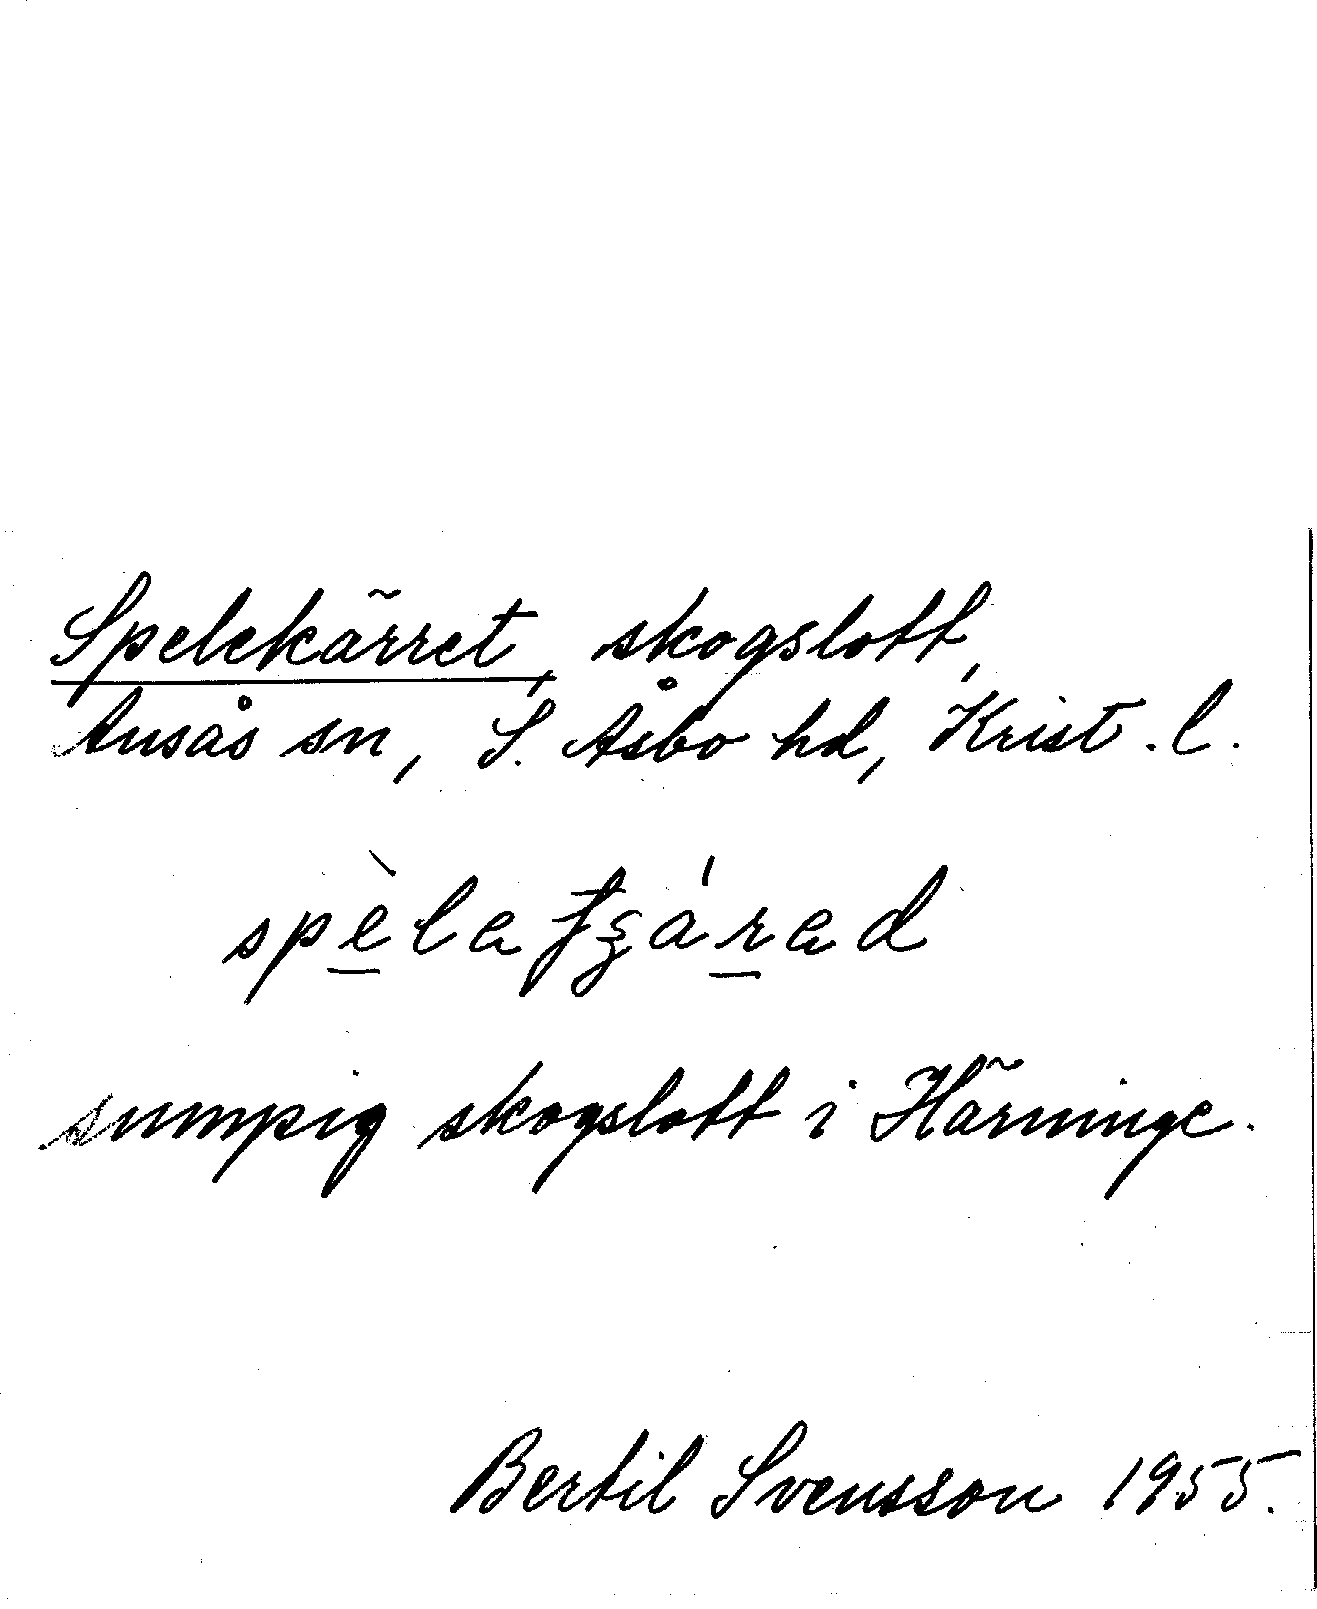 Spelekärret, skogslott,
Ausås sn, S. Åsbo hd, Krist. l.
sumpig skogslott i Härninge.
Bertil Svensson 1955.